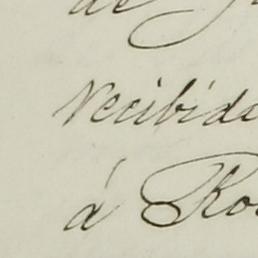 de
recibida
á Ro